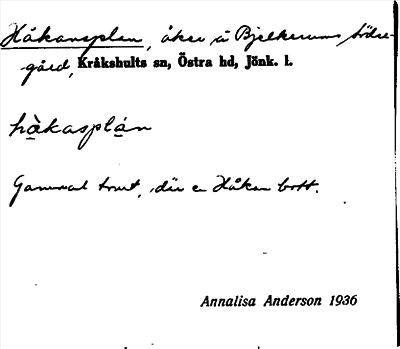 Håkansplan, åker å Bjelkerums södre-
gård, Kråkshults sn, Östra hd, Jönk. l.
hàkasplán
Gammal tomt, där en Håkan bott.
Annalisa Anderson 1936